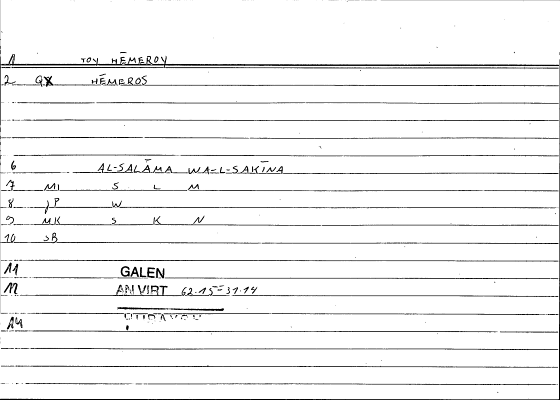 1 TOY HĒMEROY
2 GX HĒMEROS
6 AL-SALĀMA WA-L-SAKĪNA
7 MI S L M
8 P W
9 MK S K N
10 SB
11 GALEN
12 AN VIRT 62.15=31.14
14